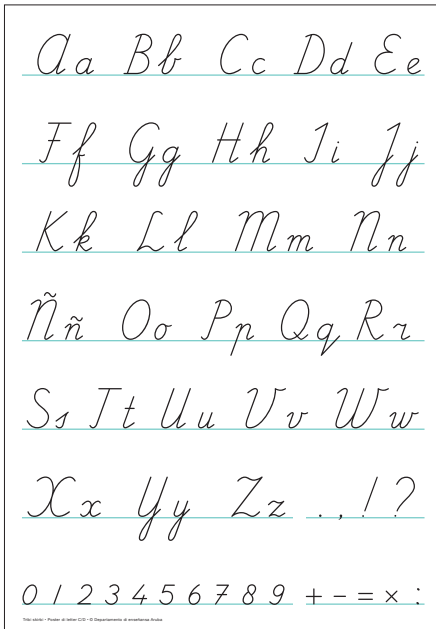 Aa Bb Cc Dd Ee
Ff Gg Hh Ii Jj
Kk Ll Mm Nn
Ññ Oo Pp Qq Rr
Ss Tt Uu Vv Ww
Xx Yy Zz . , ! ?
0 1 2 3 4 5 6 7 8 9 + - = × :
Triki skirbi • Poster di letter C/D • © Departamento di enseñansa Aruba